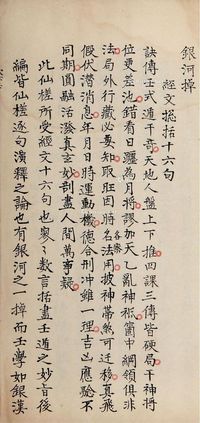 銀河棹
經文捴括十六句
訣傳壬式遁干竒天地人盤上下推四課三傳皆硬局干神將
位更差池錯看日躔為月將謬加天乙亂神祇箇中綱領俱非
法局外行藏必要知取旺因時各家名法用披神帶煞可迁移真飛
假伏潜消息年月日時運動機德合刑冲雖一理吉凶應驗不
同期圓融活潑真玄妙剖盡人間萬事疑
此仙槎所受經文十六句也寥々數言括盡壬道之妙旨後
編皆仙槎逐句演釋之論也有銀河之一棹而壬學如銀漢